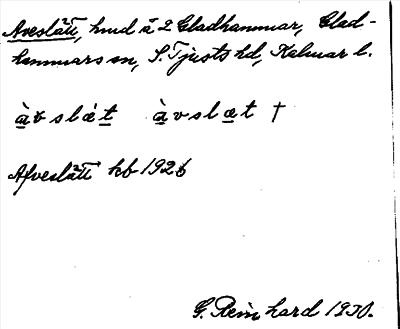 Aveslätt, hmd å 2 Gladhammar, Glad-
hammars sn, S. Tjusts hd, Kalmar l.
àvslæ̀t àvslæt †
Afveslätt kb 1926
G. Reinhard 1930.